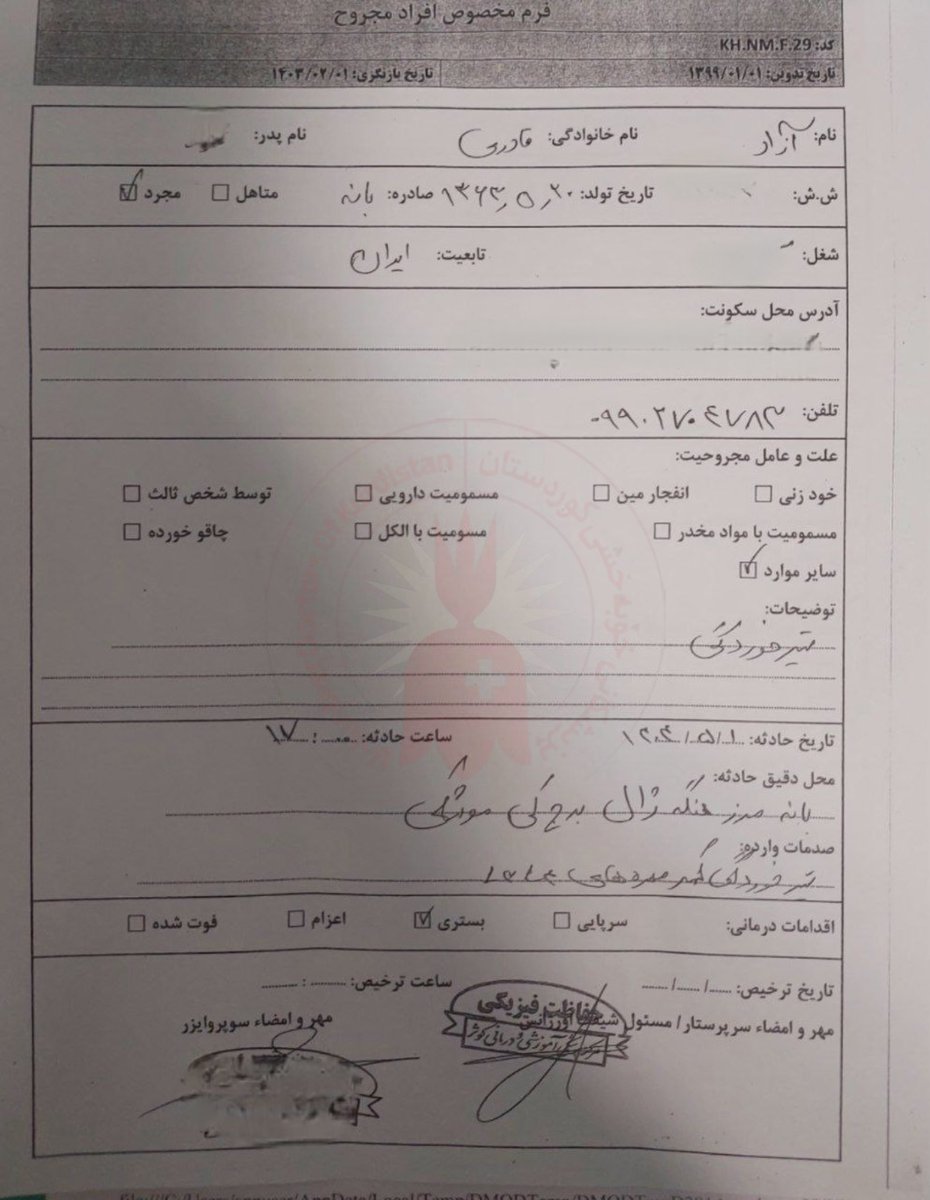 فرم مخصوص افراد مجروح
کد: KH.NM.F.29
تاریخ تدوین: ۱۳۹۹/۰۱/۰۱ تاریخ بازنگری: ۱۴۰۳/۰۲/۰۱
نام: آزاد نام خانوادگی: قادری نام پدر:
ش.ش: تاریخ تولد: ۱۳۶۳٫۵٫۲۰ صادره: بانه متاهل ☐ مجرد ☑
شغل: تابعیت: ایران
آدرس محل سکونت:
تلفن: ۰۹۹۰۲۷۰۴۷۸۳
علت و عامل مجروحیت:
خود زنی ☐ انفجار مین ☐ مسمومیت دارویی ☐ توسط شخص ثالث ☐
مسمومیت با مواد مخدر ☐ مسومیت با الکل ☐ چاقو خورده ☐
سایر موارد ☑
توضیحات:
تیر خوردگی
تاریخ حادثه: ساعت حادثه: ۱۷:۰۰
محل دقیق حادثه:
بانه مرز هنگه ژال برج کی موشکی
صدمات وارده:
تیر خوردگی کمر مهره های
اقدامات درمانی: سرپایی ☐ بستری ☑ اعزام ☐ فوت شده ☐
تاریخ ترخیص: ....../....../...... ساعت ترخیص: ......... : .........
مهر و امضاء سرپرستار/ مسئول شیفت اورژانس مهر و امضاء سوپروایزر
حفاظت فیزیکی
آموزشی و درمانی کوثر
Kurdistan
کوردستان